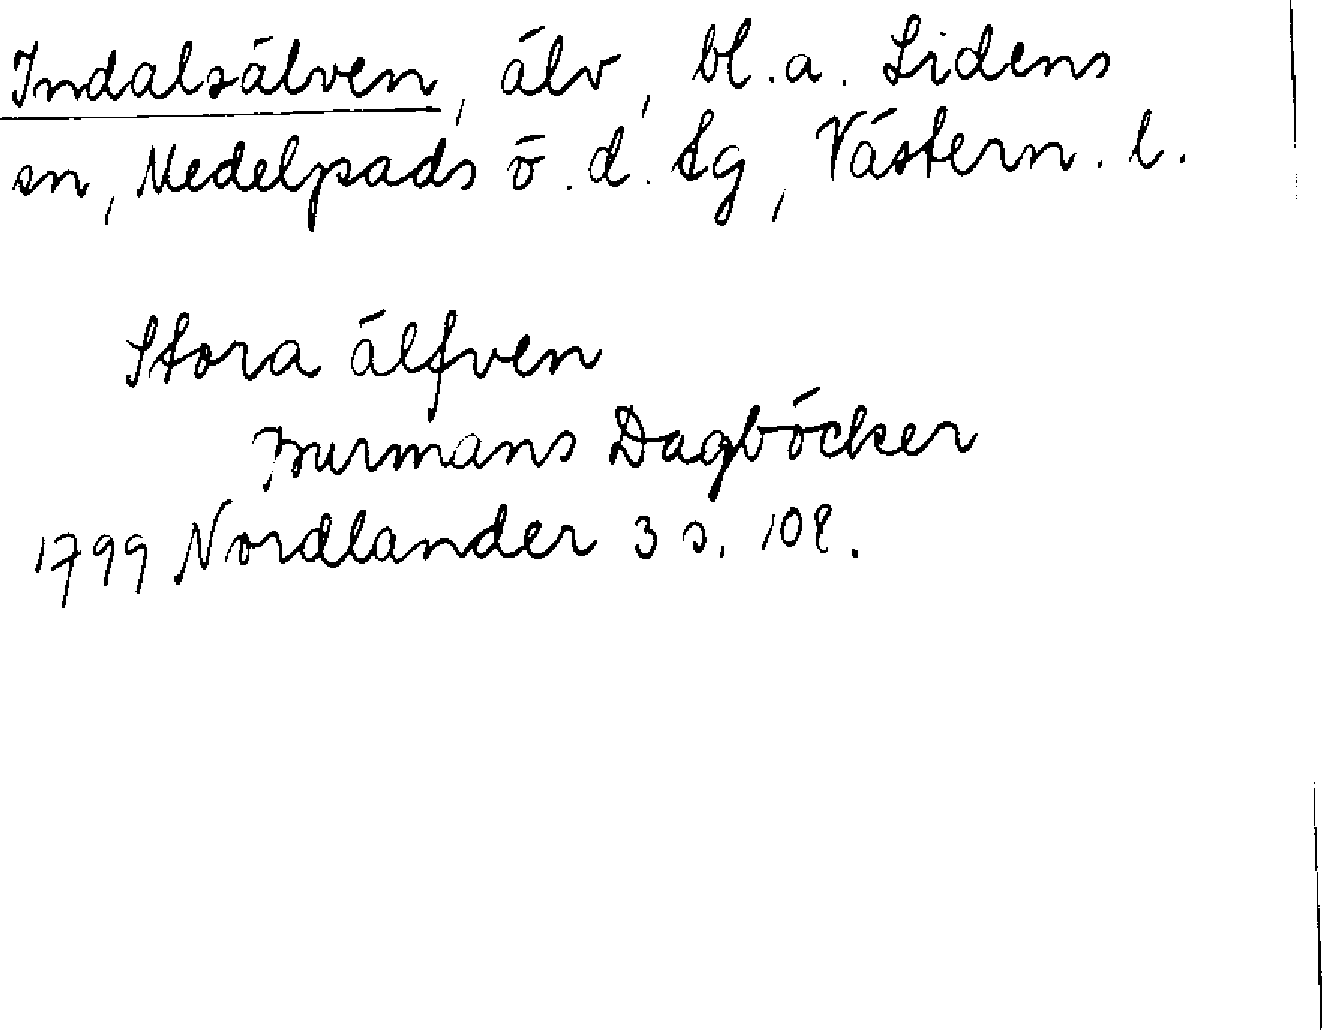 Indalsälven, älv, bl.a. Lidens
sn, Medelpads ö. d. tg, Västern. l.
Stora älfven
Burmans Dagböcker
1799 Nordlander 3 s. 108.